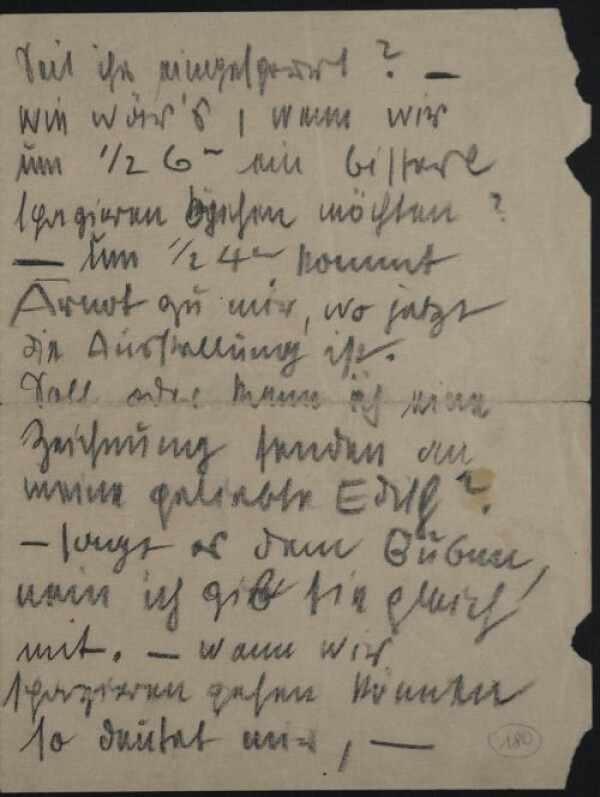 Seit ihr eingesperrt? —
wie wär's, wenn wir
um 1/2 6 ein bisserl
spazieren gehen möchten?
— Um 1/2 4 kommt
Arnot zu mir, wo jetzt
die Ausstellung ist.
Soll oder kann ich eine
Zeichnung senden an
meine geliebte Edith?
— sagt es dem Buben,
nein ich gib sie gleich
mit. — wenn wir
spazieren gehen könnten
so deutet mir, —
180